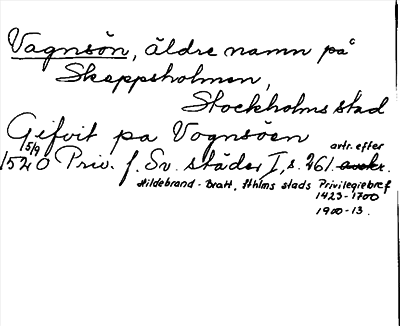 Vagnsön, äldre namn på
Skeppsholmen,
Stockholms stad
Gifvit pa Vognsöen
5/9 avtr. efter
1520 Priv. f. Sv. städer I, s. 261.
Hildebrand-Bratt, Sthlms stads Privilegiebref
1423-1700
1900-13.